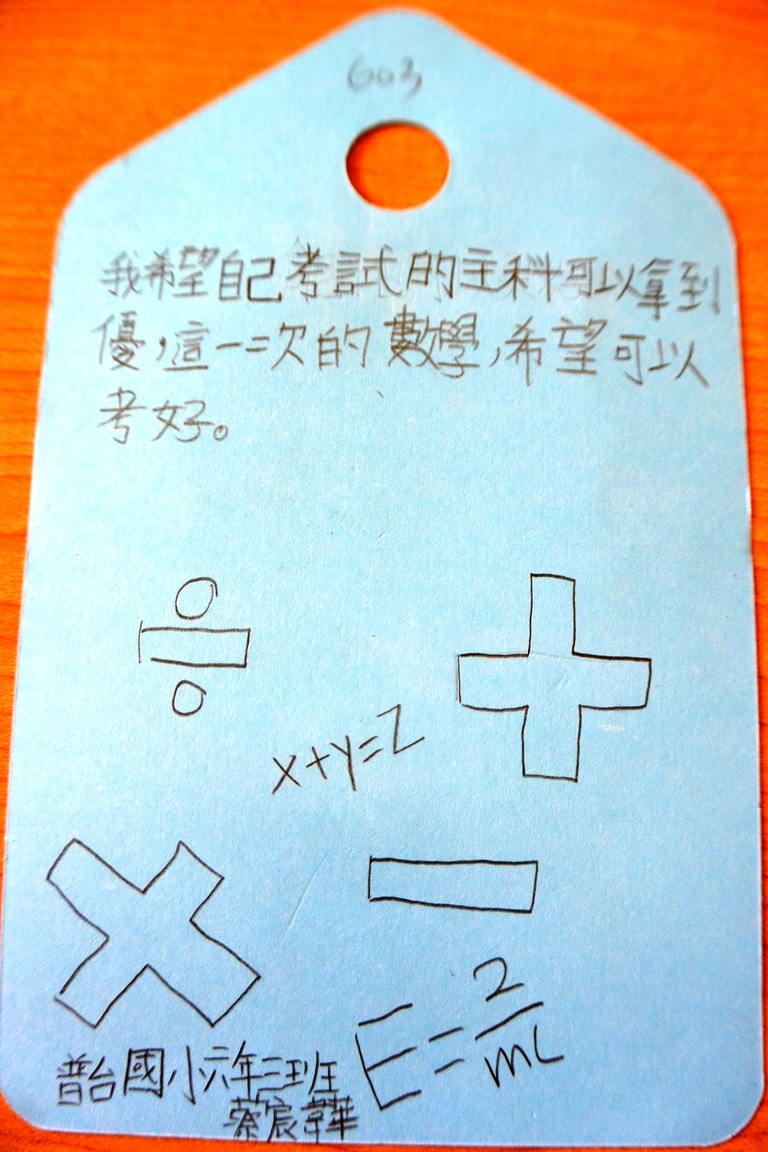 603
我希望自己考試的主科可以拿到
優,這一二次的數學,希望可以
考好。
÷
+
x+y=z
×
−
E=2/mc
普台國小六年三班
蔡宸